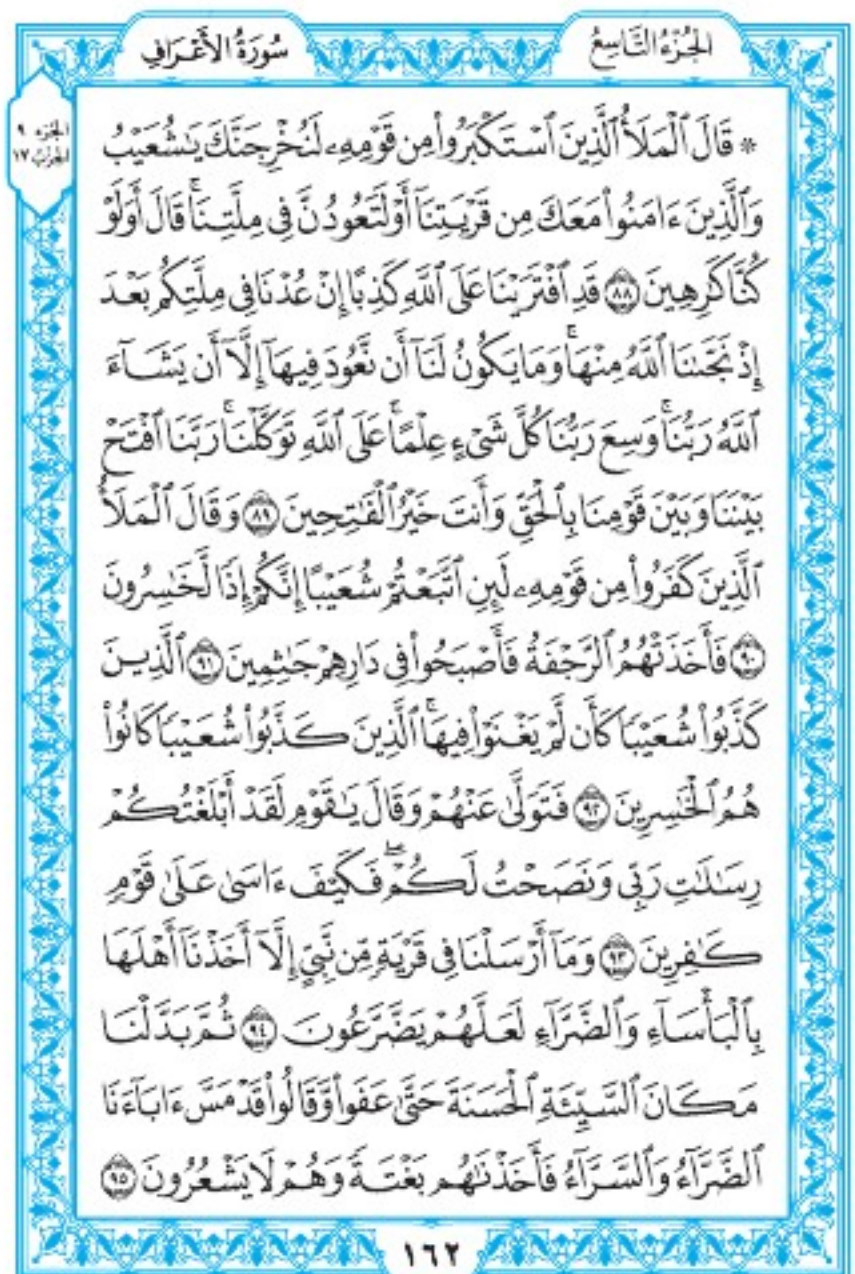 الجُزْءُ التَّاسِعُ
سُورَةُ الأَعْرَافِ
الجزء ٩
الحزب ١٧
* قَالَ ٱلْمَلَأُ ٱلَّذِينَ ٱسْتَكْبَرُواْ مِن قَوْمِهِۦ لَنُخْرِجَنَّكَ يَٰشُعَيْبُ
وَٱلَّذِينَ ءَامَنُواْ مَعَكَ مِن قَرْيَتِنَآ أَوْ لَتَعُودُنَّ فِي مِلَّتِنَاۚ قَالَ أَوَلَوْ
كُنَّا كَٰرِهِينَ ٨٨ قَدِ ٱفْتَرَيْنَا عَلَى ٱللَّهِ كَذِبًا إِنْ عُدْنَا فِي مِلَّتِكُم بَعْدَ
إِذْ نَجَّىٰنَا ٱللَّهُ مِنْهَاۚ وَمَا يَكُونُ لَنَآ أَن نَّعُودَ فِيهَآ إِلَّآ أَن يَشَآءَ
ٱللَّهُ رَبُّنَاۚ وَسِعَ رَبُّنَا كُلَّ شَيْءٍ عِلْمًاۚ عَلَى ٱللَّهِ تَوَكَّلْنَاۚ رَبَّنَا ٱفْتَحْ
بَيْنَنَا وَبَيْنَ قَوْمِنَا بِٱلْحَقِّ وَأَنتَ خَيْرُ ٱلْفَٰتِحِينَ ٨٩ وَقَالَ ٱلْمَلَأُ
ٱلَّذِينَ كَفَرُواْ مِن قَوْمِهِۦ لَئِنِ ٱتَّبَعْتُمْ شُعَيْبًا إِنَّكُمْ إِذًا لَّخَٰسِرُونَ
٩٠ فَأَخَذَتْهُمُ ٱلرَّجْفَةُ فَأَصْبَحُواْ فِي دَارِهِمْ جَٰثِمِينَ ٩١ ٱلَّذِينَ
كَذَّبُواْ شُعَيْبًا كَأَن لَّمْ يَغْنَوْاْ فِيهَاۚ ٱلَّذِينَ كَذَّبُواْ شُعَيْبًا كَانُواْ
هُمُ ٱلْخَٰسِرِينَ ٩٢ فَتَوَلَّىٰ عَنْهُمْ وَقَالَ يَٰقَوْمِ لَقَدْ أَبْلَغْتُكُمْ
رِسَٰلَٰتِ رَبِّي وَنَصَحْتُ لَكُمْۖ فَكَيْفَ ءَاسَىٰ عَلَىٰ قَوْمٍ
كَٰفِرِينَ ٩٣ وَمَآ أَرْسَلْنَا فِي قَرْيَةٍ مِّن نَّبِيٍّ إِلَّآ أَخَذْنَآ أَهْلَهَا
بِٱلْبَأْسَآءِ وَٱلضَّرَّآءِ لَعَلَّهُمْ يَضَّرَّعُونَ ٩٤ ثُمَّ بَدَّلْنَا
مَكَانَ ٱلسَّيِّئَةِ ٱلْحَسَنَةَ حَتَّىٰ عَفَواْ وَّقَالُواْ قَدْ مَسَّ ءَابَآءَنَا
ٱلضَّرَّآءُ وَٱلسَّرَّآءُ فَأَخَذْنَٰهُم بَغْتَةً وَهُمْ لَا يَشْعُرُونَ ٩٥
١٦٢